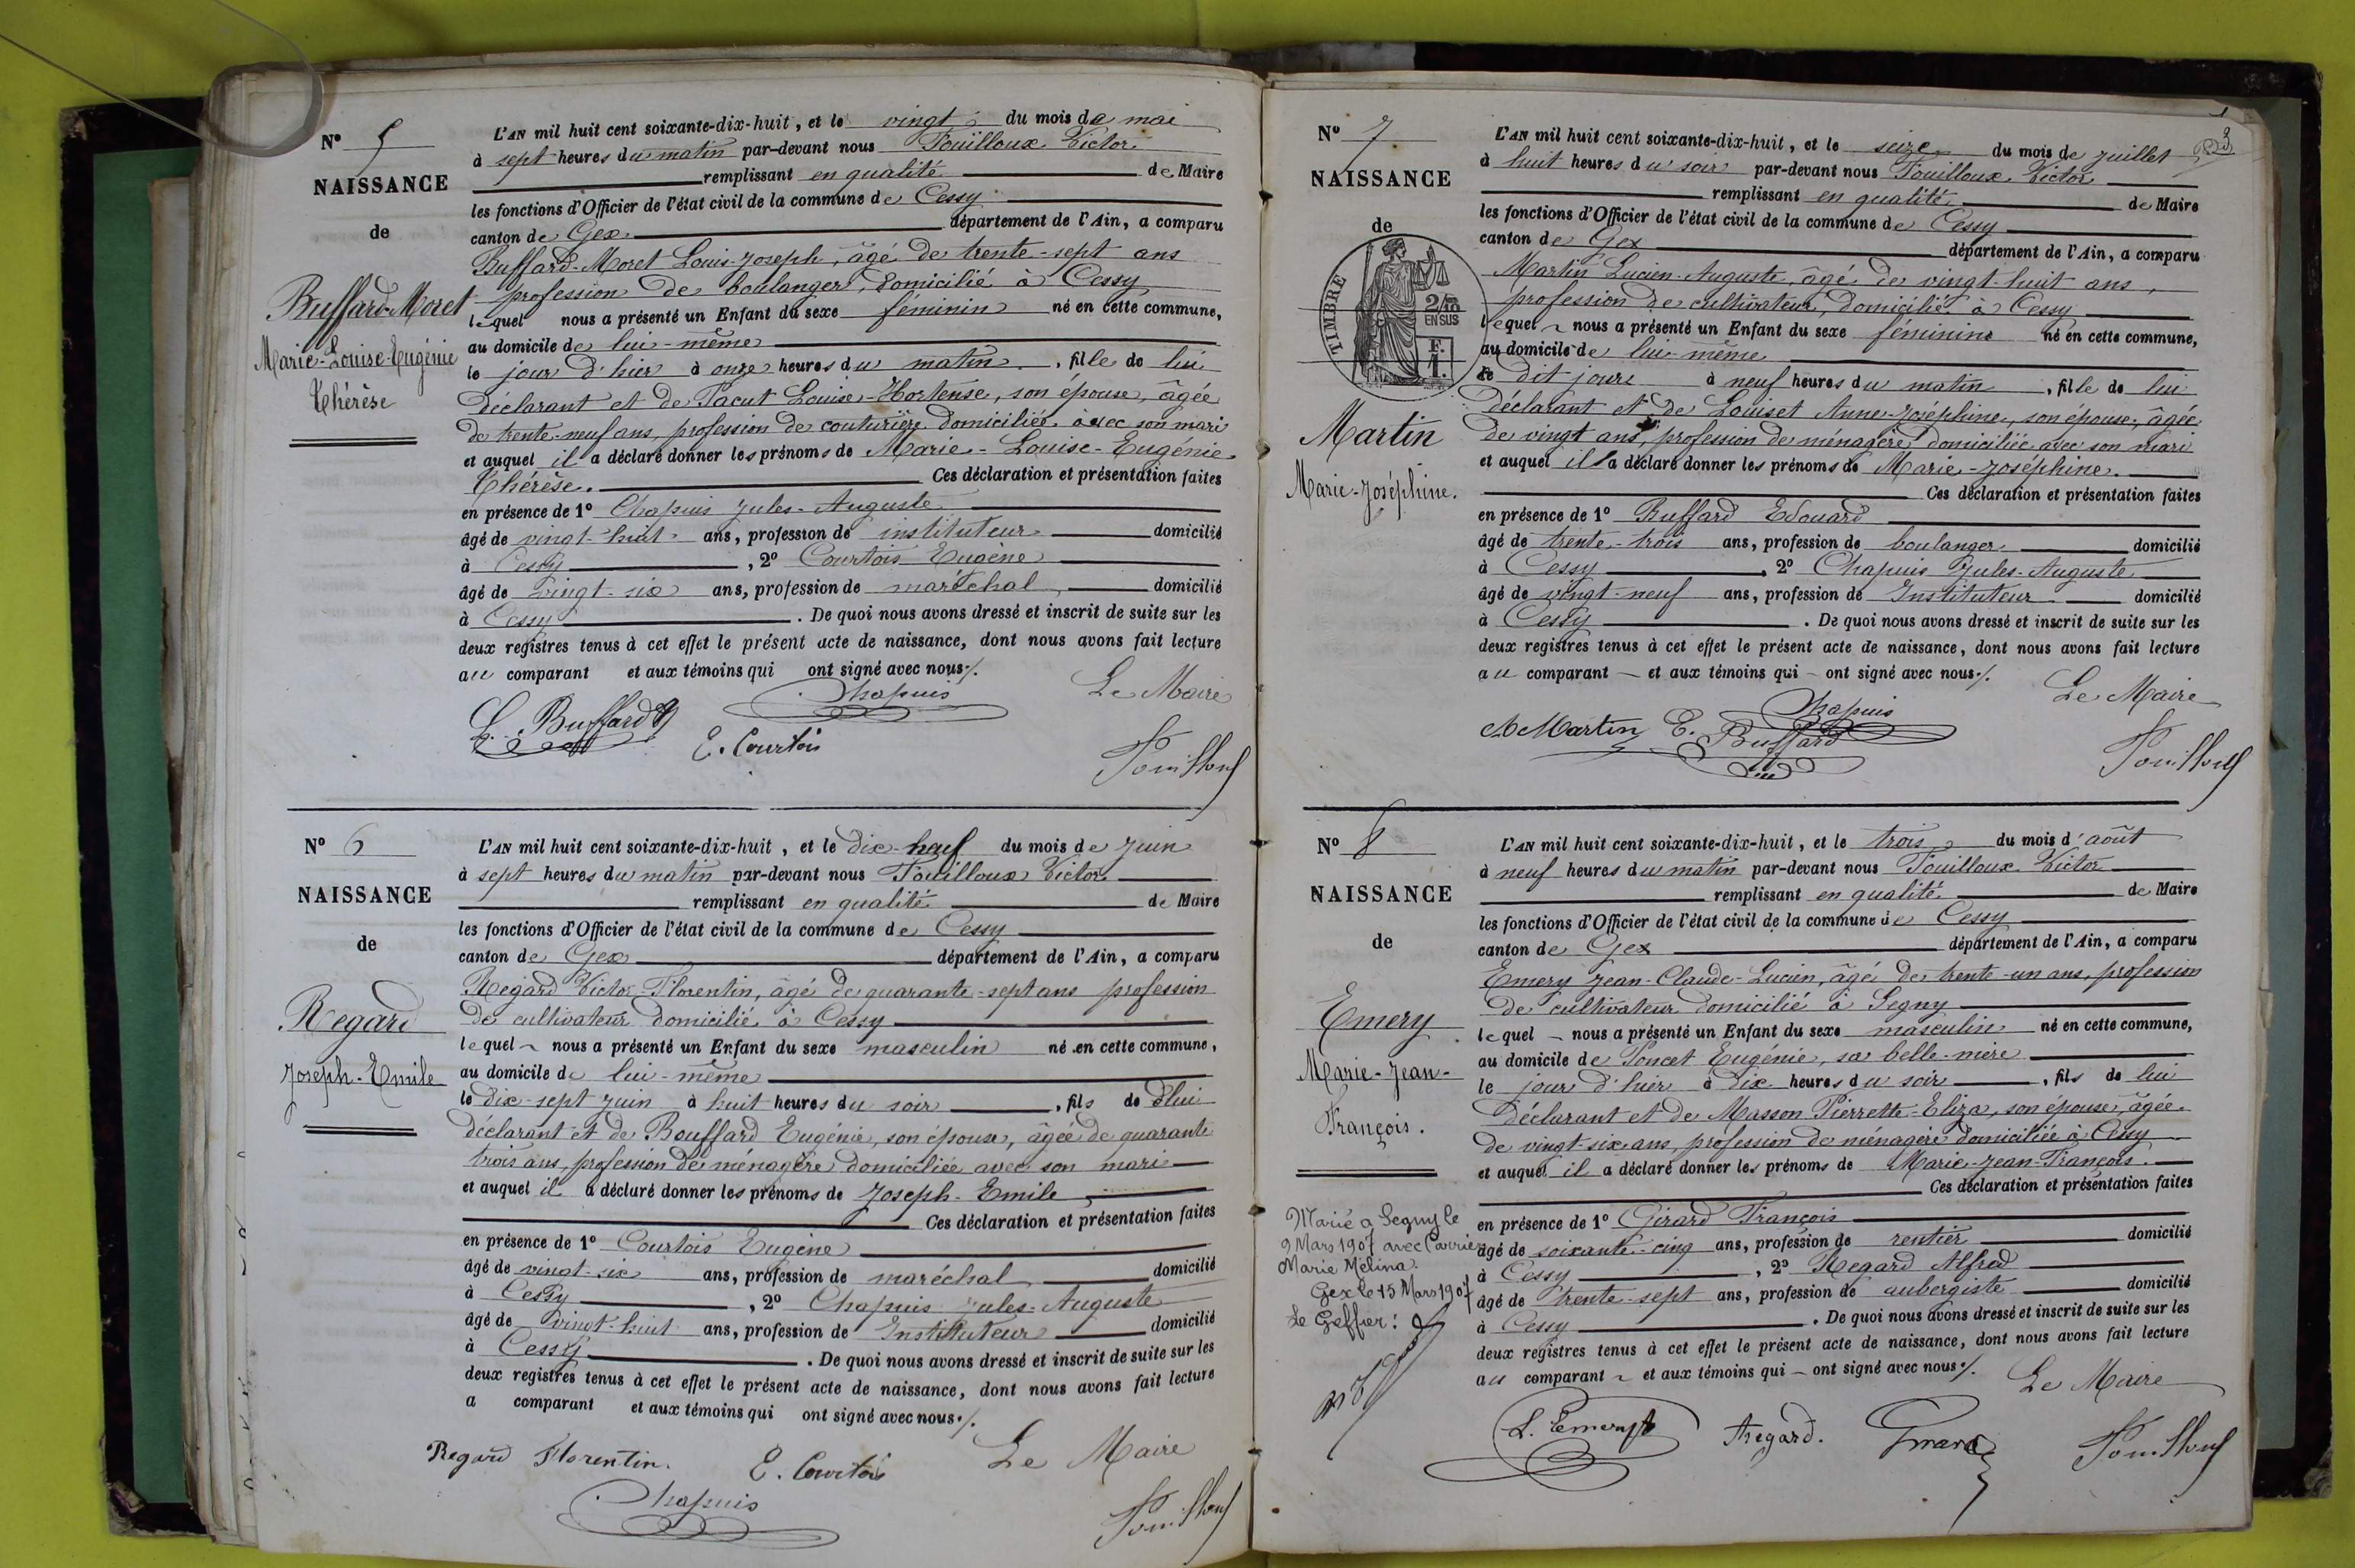 N° 5
NAISSANCE
de
Buffard-Moret
Marie-Louise-Eugénie
Thérèse
L'AN mil huit cent soixante-dix-huit, et le vingt du mois de mai
à sept heures du matin par-devant nous Fouilloux Victor
remplissant en qualité de Maire
les fonctions d'Officier de l'état civil de la commune de Cessy
canton de Gex département de l'Ain, a comparu
Buffard-Moret Louis-Joseph, âgé de trente-sept ans
profession de boulanger, domicilié à Cessy
lequel nous a présenté un Enfant du sexe féminin né en cette commune,
au domicile de lui-même
le jour d'hier à onze heures du matin, fille de lui
déclarant et de Pacut Louise-Hortense, son épouse, âgée
de trente-neuf ans, profession de couturière domiciliée avec son mari
et auquel il a déclaré donner les prénoms de Marie-Louise-Eugénie
Thérèse. Ces déclaration et présentation faites
en présence de 1° Chapuis Jules-Auguste
âgé de vingt-huit ans, profession de instituteur domicilié
à Cessy, 2° Courtois Eugène
âgé de vingt-six ans, profession de maréchal, domicilié
à Cessy. De quoi nous avons dressé et inscrit de suite sur les
deux registres tenus à cet effet le présent acte de naissance, dont nous avons fait lecture
au comparant et aux témoins qui ont signé avec nous ./.
Chapuis Le Maire
L. Buffard E. Courtois
Fouilloux
N° 6
NAISSANCE
de
Regard
Joseph-Emile
L'AN mil huit cent soixante-dix-huit, et le dix-neuf du mois de juin
à sept heures du matin par-devant nous Fouilloux Victor
remplissant en qualité de Maire
les fonctions d'Officier de l'état civil de la commune de Cessy
canton de Gex département de l'Ain, a comparu
Regard Victor-Florentin, âgé de quarante-sept ans profession
de cultivateur domicilié à Cessy
lequel nous a présenté un Enfant du sexe masculin né en cette commune,
au domicile de lui-même
le dix-sept juin à huit heures du soir, fils de lui
déclarant et de Bouffard Eugénie, son épouse, âgée de quarante
trois ans, profession de ménagère domiciliée avec son mari
et auquel il a déclaré donner les prénoms de Joseph-Emile
Ces déclaration et présentation faites
en présence de 1° Courtois Eugène
âgé de vingt-six ans, profession de maréchal domicilié
à Cessy, 2° Chapuis Jules-Auguste
âgé de vingt-huit ans, profession de Instituteur domicilié
à Cessy. De quoi nous avons dressé et inscrit de suite sur les
deux registres tenus à cet effet le présent acte de naissance, dont nous avons fait lecture
a comparant et aux témoins qui ont signé avec nous ./.
Regard Florentin. E. Courtois Le Maire
Chapuis Fouilloux
N° 7
NAISSANCE
de
TIMBRE
2/10
EN SUS
F.
1.
Martin
Marie-Joséphine.
L'AN mil huit cent soixante-dix-huit, et le seize du mois de juillet
à huit heures du soir par-devant nous Fouilloux Victor
remplissant en qualité de Maire
les fonctions d'Officier de l'état civil de la commune de Cessy
canton de Gex département de l'Ain, a comparu
Martin Lucien-Auguste, âgé de vingt-huit ans,
profession de cultivateur, domicilié à Cessy
lequel nous a présenté un Enfant du sexe féminin né en cette commune,
au domicile de lui-même
dit jour à neuf heures du matin, fille de lui
déclarant et de Louiset Anne-Joséphine, son épouse, âgée
de vingt ans, profession de ménagère domiciliée avec son mari
et auquel il a déclaré donner les prénoms de Marie-Joséphine.
Ces déclaration et présentation faites
en présence de 1° Buffard Edouard
âgé de trente-trois ans, profession de boulanger domicilié
à Cessy, 2° Chapuis Jules-Auguste
âgé de vingt-neuf ans, profession de Instituteur domicilié
à Cessy. De quoi nous avons dressé et inscrit de suite sur les
deux registres tenus à cet effet le présent acte de naissance, dont nous avons fait lecture
au comparant et aux témoins qui ont signé avec nous ./.
Chapuis Le Maire
A Martin E. Buffard
Fouilloux
N° 8
NAISSANCE
de
Emery
Marie-Jean-
François.
Marié à Segny le
9 Mars 1907 avec
Marie Mélina.
Gex le 15 Mars 1907
Le Greffier:
L'AN mil huit cent soixante-dix-huit, et le trois du mois d'août
à neuf heures du matin par-devant nous Fouilloux Victor
remplissant en qualité de Maire
les fonctions d'Officier de l'état civil de la commune de Cessy
canton de Gex département de l'Ain, a comparu
Emery Jean-Claude-Lucien, âgé de trente-un ans, profession
de cultivateur domicilié à Segny
lequel nous a présenté un Enfant du sexe masculin né en cette commune,
au domicile de Poncet Eugénie, sa belle-mère
le jour d'hier à dix heures du soir, fils de lui
déclarant et de Masson Pierrette-Eliza, son épouse, âgée
de vingt-six ans, profession de ménagère domiciliée à Cessy
et auquel il a déclaré donner les prénoms de Marie-Jean-François.
Ces déclaration et présentation faites
en présence de 1° Girard François
âgé de soixante-cinq ans, profession de rentier domicilié
à Cessy, 2° Regard Alfred
âgé de trente-sept ans, profession de aubergiste domicilié
à Cessy. De quoi nous avons dressé et inscrit de suite sur les
deux registres tenus à cet effet le présent acte de naissance, dont nous avons fait lecture
au comparant et aux témoins qui ont signé avec nous ./.
Le Maire
L. Emery Regard. Girard
Fouilloux